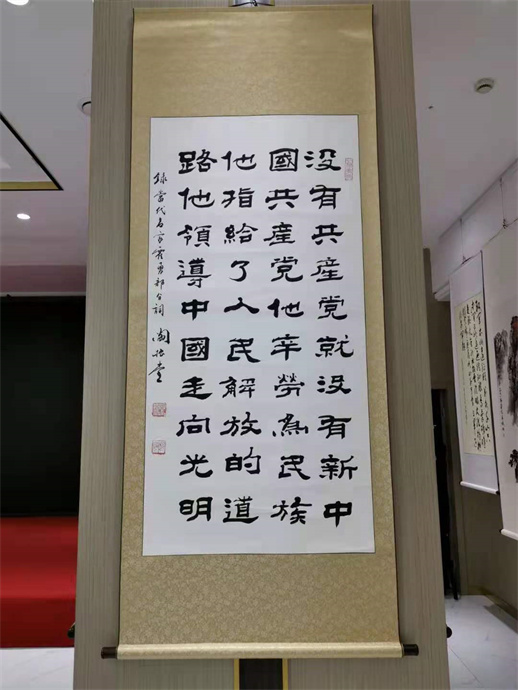 没有共産党就没有新中
國共産党他辛勞為民族
他指給了人民解放的道
路他領導中國走向光明
錄當代名家